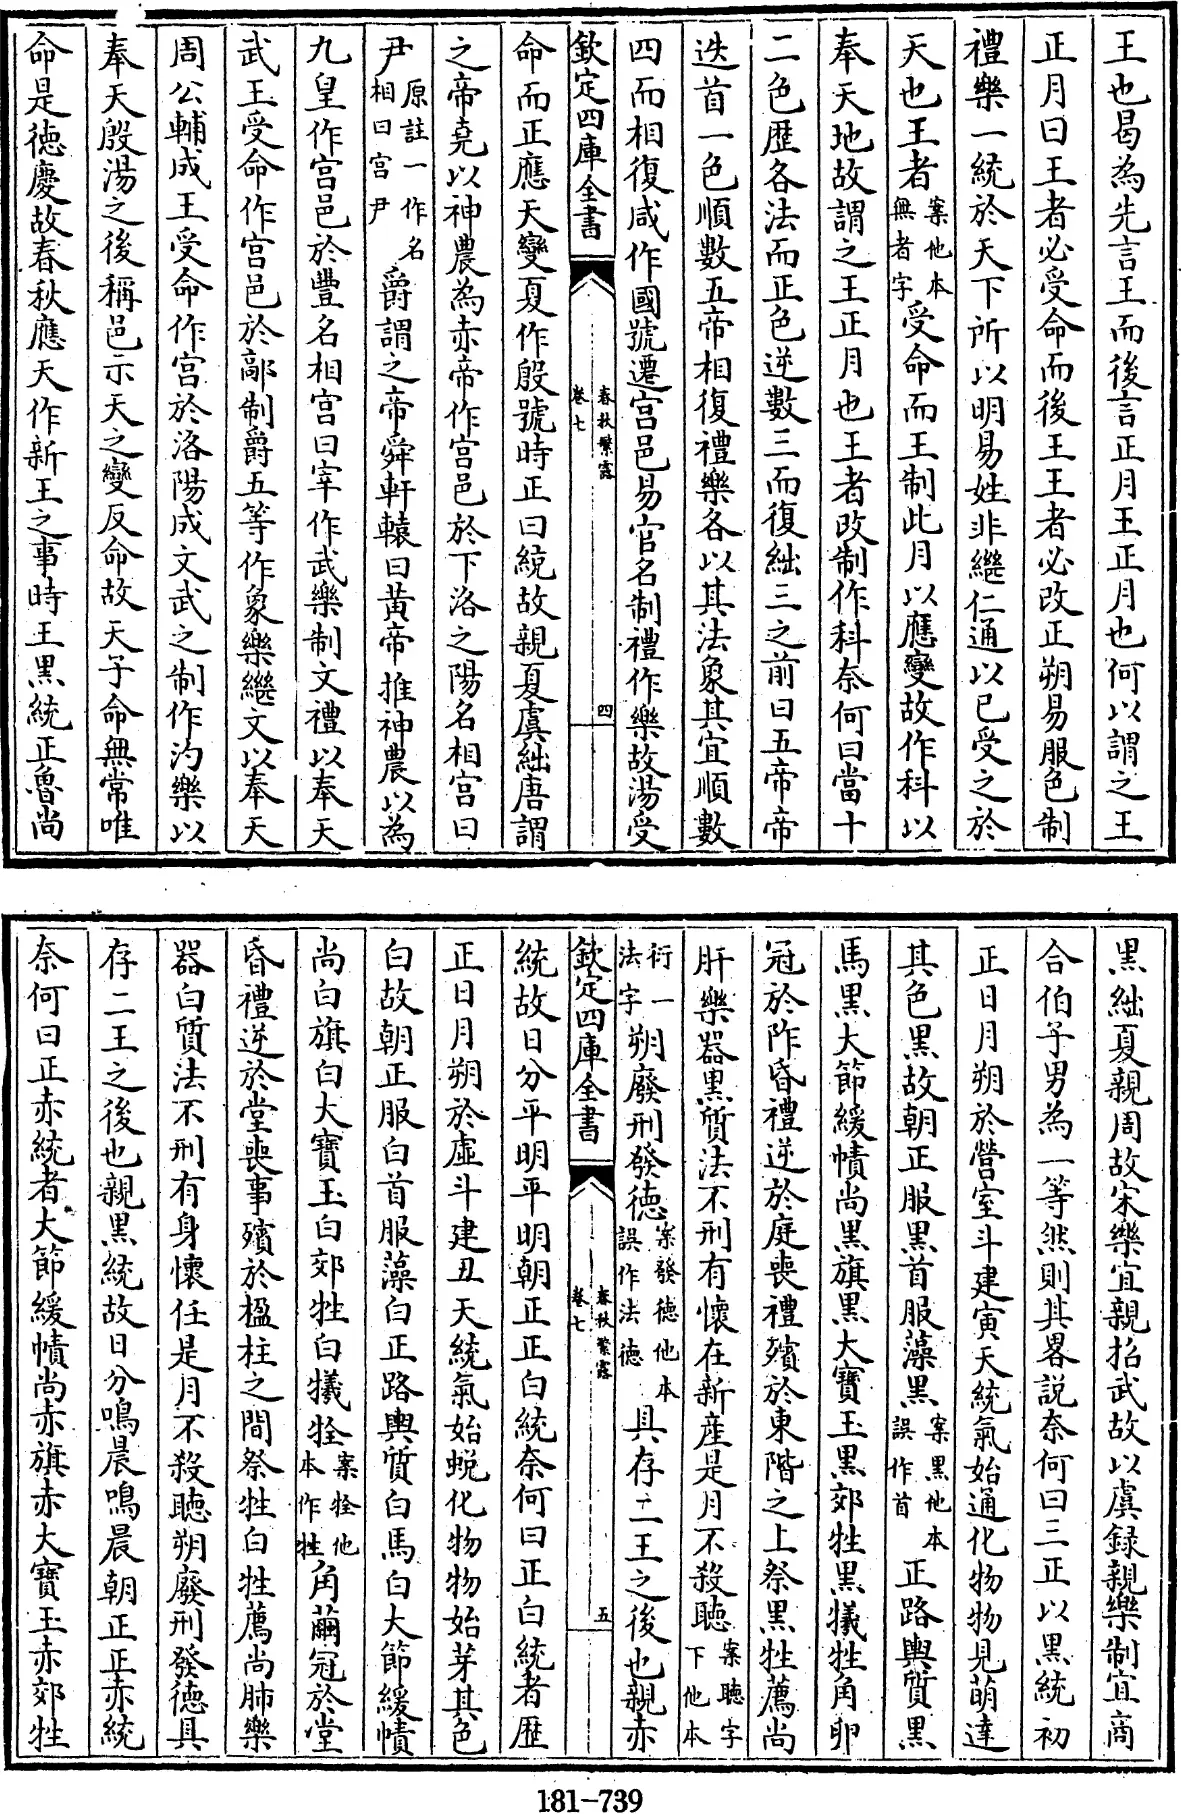 王也曷為先言王而後言正月王正月也何以謂之王
正月曰王者必受命而後王王者必改正朔易服色制
禮樂一統於天下所以明易姓非繼仁通以已受之於
天也王者案他本無者字受命而王制此月以應變故作科以
奉天地故謂之王正月也王者改制作科奈何曰當十
二色歴各法而正色逆數三而復絀三之前曰五帝帝
迭首一色順數五帝相復禮樂各以其法象其宜順數
四而相復咸作國號遷宫邑易官名制禮作樂故湯受
欽定四庫全書
春秋繁露
卷七
四
命而正應天變夏作殷號時正曰統故親夏虞絀唐謂
之帝堯以神農為赤帝作宫邑於下洛之陽名相宫曰
尹原註一作名相曰宫尹爵謂之帝舜軒轅曰黄帝推神農以為
九皇作宫邑於豐名相宫曰宰作武樂制文禮以奉天
武王受命作宫邑於鄗制爵五等作象樂繼文以奉天
周公輔成王受命作宫於洛陽成文武之制作汋樂以
奉天殷湯之後稱邑示天之變反命故天子命無常唯
命是徳慶故春秋應天作新王之事時王黒統正魯尚
黒絀夏親周故宋樂宜親招武故以虞録親樂制宜商
合伯子男為一等然則其畧説奈何曰三正以黒統初
正日月朔於營室斗建寅天統氣始通化物物見萌達
其色黒故朝正服黒首服藻黒案黒他本誤作首正路輿質黒
馬黒大節緩幘尚黒旗黒大寶玉黒郊牲黒犧牲角卵
冠於阼昏禮逆於庭喪禮殯於東階之上祭黒牲薦尚
肝樂器黒質法不刑有懷在新産是月不殺聽案聽字下他本
衍一法字朔廢刑發徳案發徳他本誤作法徳具存二王之後也親赤
欽定四庫全書
春秋繁露
卷七
五
統故日分平明平明朝正正白統奈何曰正白統者歴
正日月朔於虚斗建丑天統氣始蜕化物物始芽其色
白故朝正服白首服藻白正路輿質白馬白大節緩幘
尚白旗白大寶玉白郊牲白犧牷案牷他本作牲角繭冠於堂
昏禮逆於堂喪事殯於楹柱之間祭牲白牲薦尚肺樂
器白質法不刑有身懷任是月不殺聴朔廢刑發徳具
存二王之後也親黒統故日分鳴晨鳴晨朝正正赤統
奈何曰正赤統者大節緩幘尚赤旗赤大寶玉赤郊牲
181-739